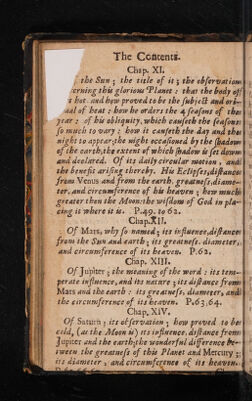 The Contents.
Chap. XI.
the Sun; the title of it; the observations
cerning this glorious Planet: that the body of
hot. and how proved to be the subject and ori-
of heat: how he orders the 4 seasons of the
year: of his obliquity, which causeth the seasons
so much to vary: how it causeth the day and the
night to appear, the night occasioned by the shadow
of the earth, the extent of which shadow is set down
and declared. Of its daily circular motion, and
the benefit arising thereby. His Eclipses, distance
from Venus and from the earth, greatness, diame-
ter, and circumference of his heaven; how much
greater then the Moon: the wisdom of God in pla-
cing it where it is. P. 49. to 62.
Chap. XII.
Of Mars, why so named; its influence, distance
from the Sun and earth; its greatness, diameter,
and circumference of its heaven. P. 62.
Chap. XIII.
Of Jupiter; the meaning of the word: its tem-
perate influence, and its nature; its distance from
Mars and the earth: its greatness, diameter, and
the circumference of its heaven. P. 63, 64.
Chap. XIV.
Of Saturn; its observation; how proved to be
cold, (as the Moon is) its influence, distance from
Jupiter and the earth; the wonderful difference be-
tween the greatness of this Planet and Mercury;
its diameter, and circumference of its heaven.